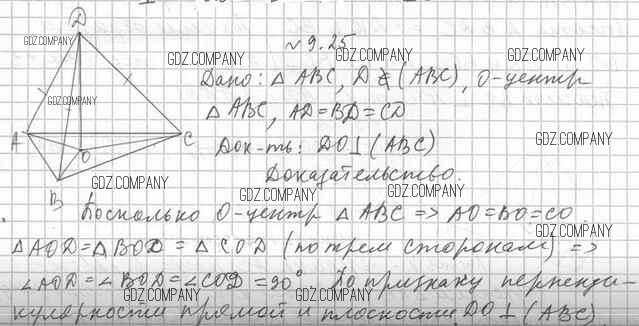 D
№ 9.25
GDZ.COMPANY GDZ.COMPANY GDZ.COMPANY GDZ.COMPANY
Дано: △ ABC, D ∉ (ABC), O-центр
GDZ.COMPANY
△ ABC, AD=BD=CD
A C GDZ.COMPANY
O
Док-ть: DO⊥(ABC)
Доказательство.
GDZ.COMPANY GDZ.COMPANY GDZ.COMPANY
B
Поскольку O-центр △ ABC => AO=BO=CO
GDZ.COMPANY
△AOD=△BOD=△COD (по трем сторонам) =>
∠AOD=∠BOD=∠COD=90°. По признаку перпенди-
GDZ.COMPANY GDZ.COMPANY GDZ.COMPANY
кулярности прямой и плоскости DO⊥(ABC)